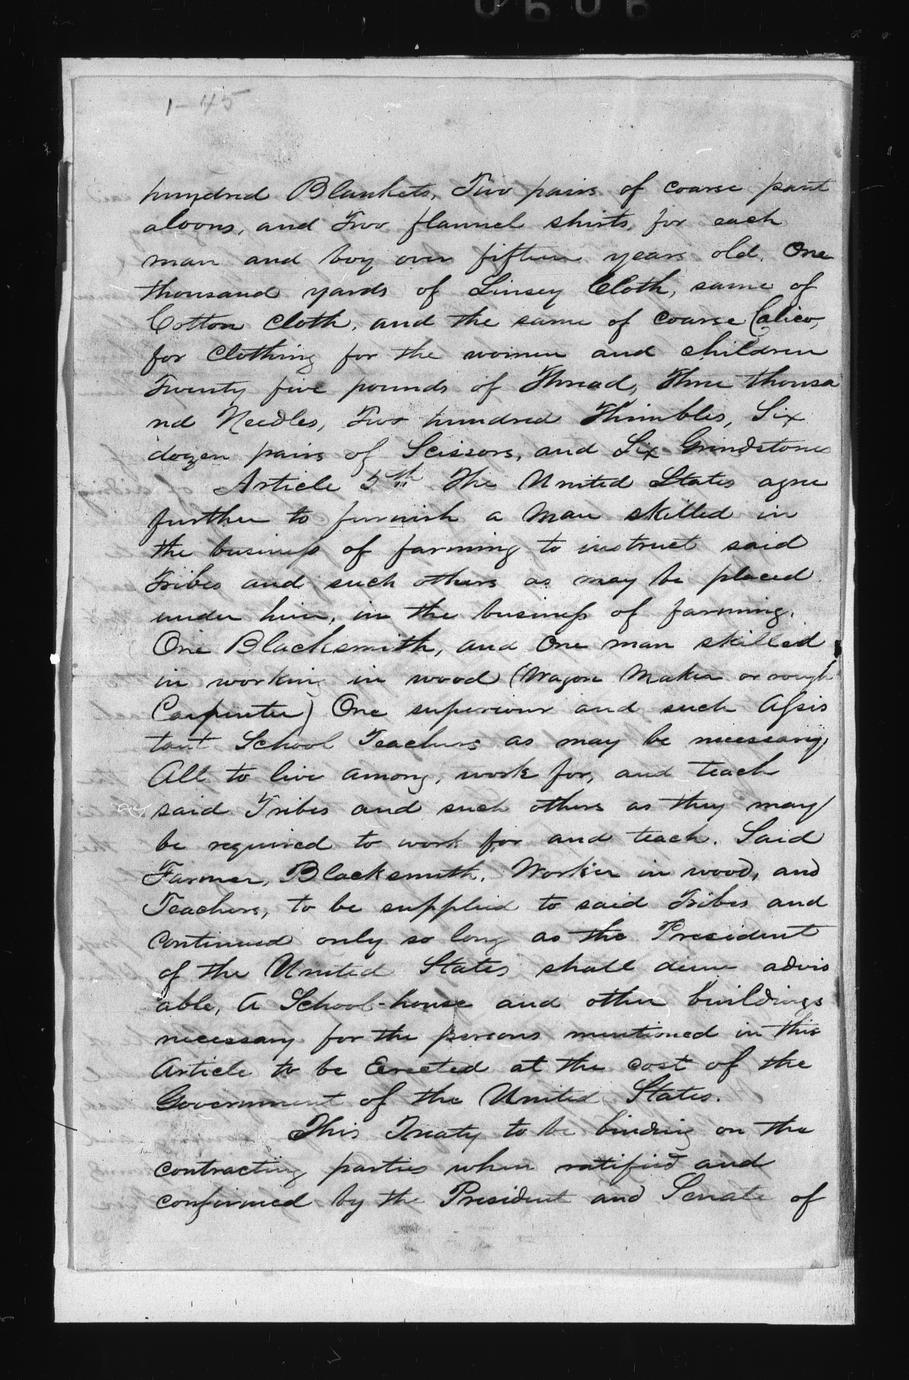 1-45
hundred Blankets, Two pairs of coarse pant
aloons, and Two flannel shirts, for each
man and boy over fifteen years old. One
thousand yards of Linsey Cloth, same of
Cotton cloth, and the same of coarse Calico,
for clothing for the women and children
Twenty five pounds of Thread, Three thousa
nd Needles, Two hundred Thimbles, Six
dozen pairs of Scissors, and Six Grindstones
Article 5th The United States agree
further to furnish a man skilled in
the business of farming to instruct said
Tribes and such others as may be placed
under him, in the business of farming.
One Blacksmith, and One man skilled
in working in wood (Wagon Maker or rough
Carpenter) One superiour and such Assis
tant School Teachers as may be necessary
All to live among, work for, and teach
said Tribes and such others as they may
be required to work for and teach. Said
Farmer, Blacksmith, Worker in wood, and
Teachers, to be supplied to said Tribes and
continued only so long as the President
of the United States shall deem advis
able, A School-house and other buildings
necessary for the persons mentioned in this
Article to be Erected at the cost of the
Government of the United States.
This Treaty to be binding on the
contracting parties when ratified and
confirmed by the President and Senate of